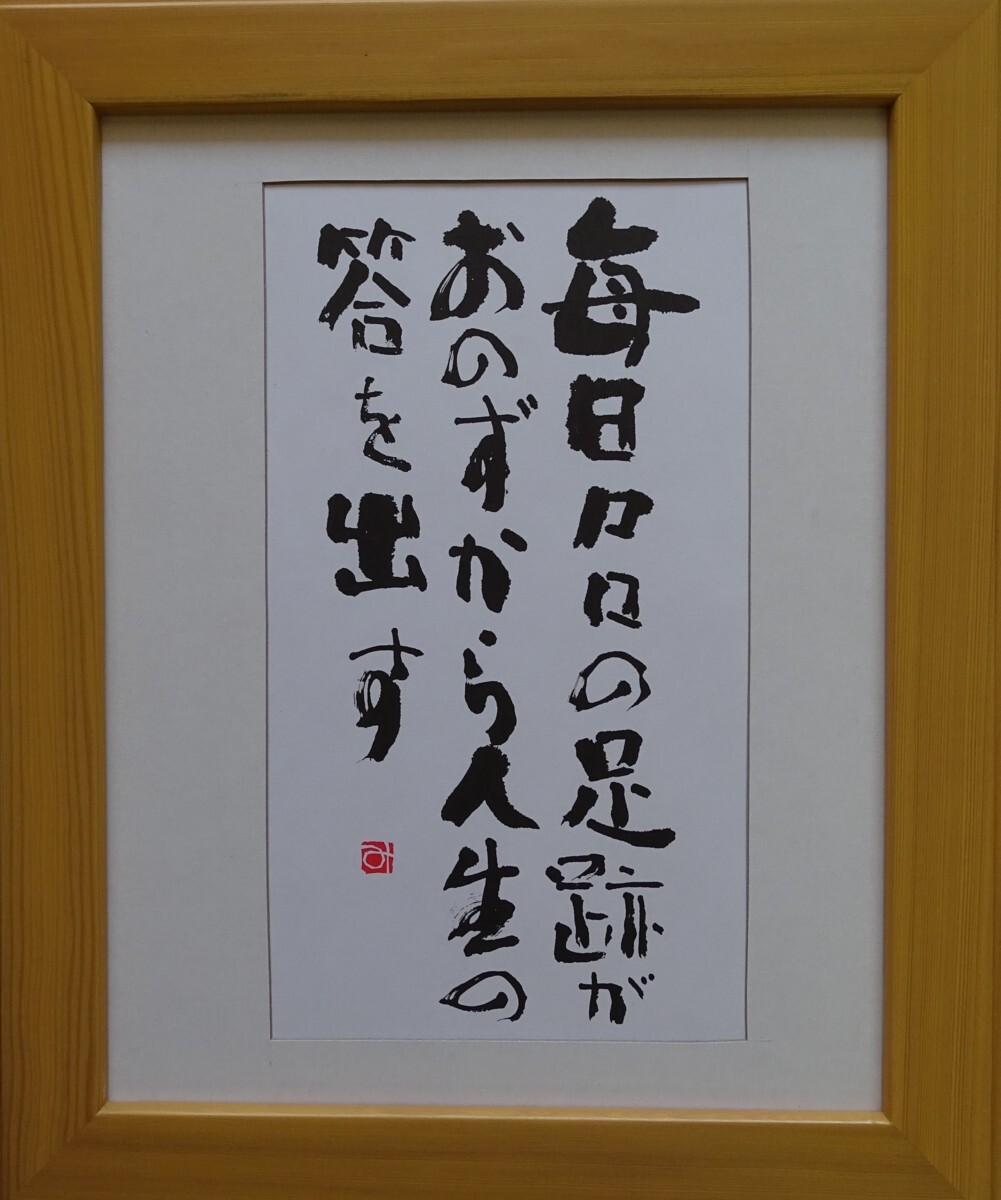 毎日毎日の足跡が
おのずから人生の
答を出す
み